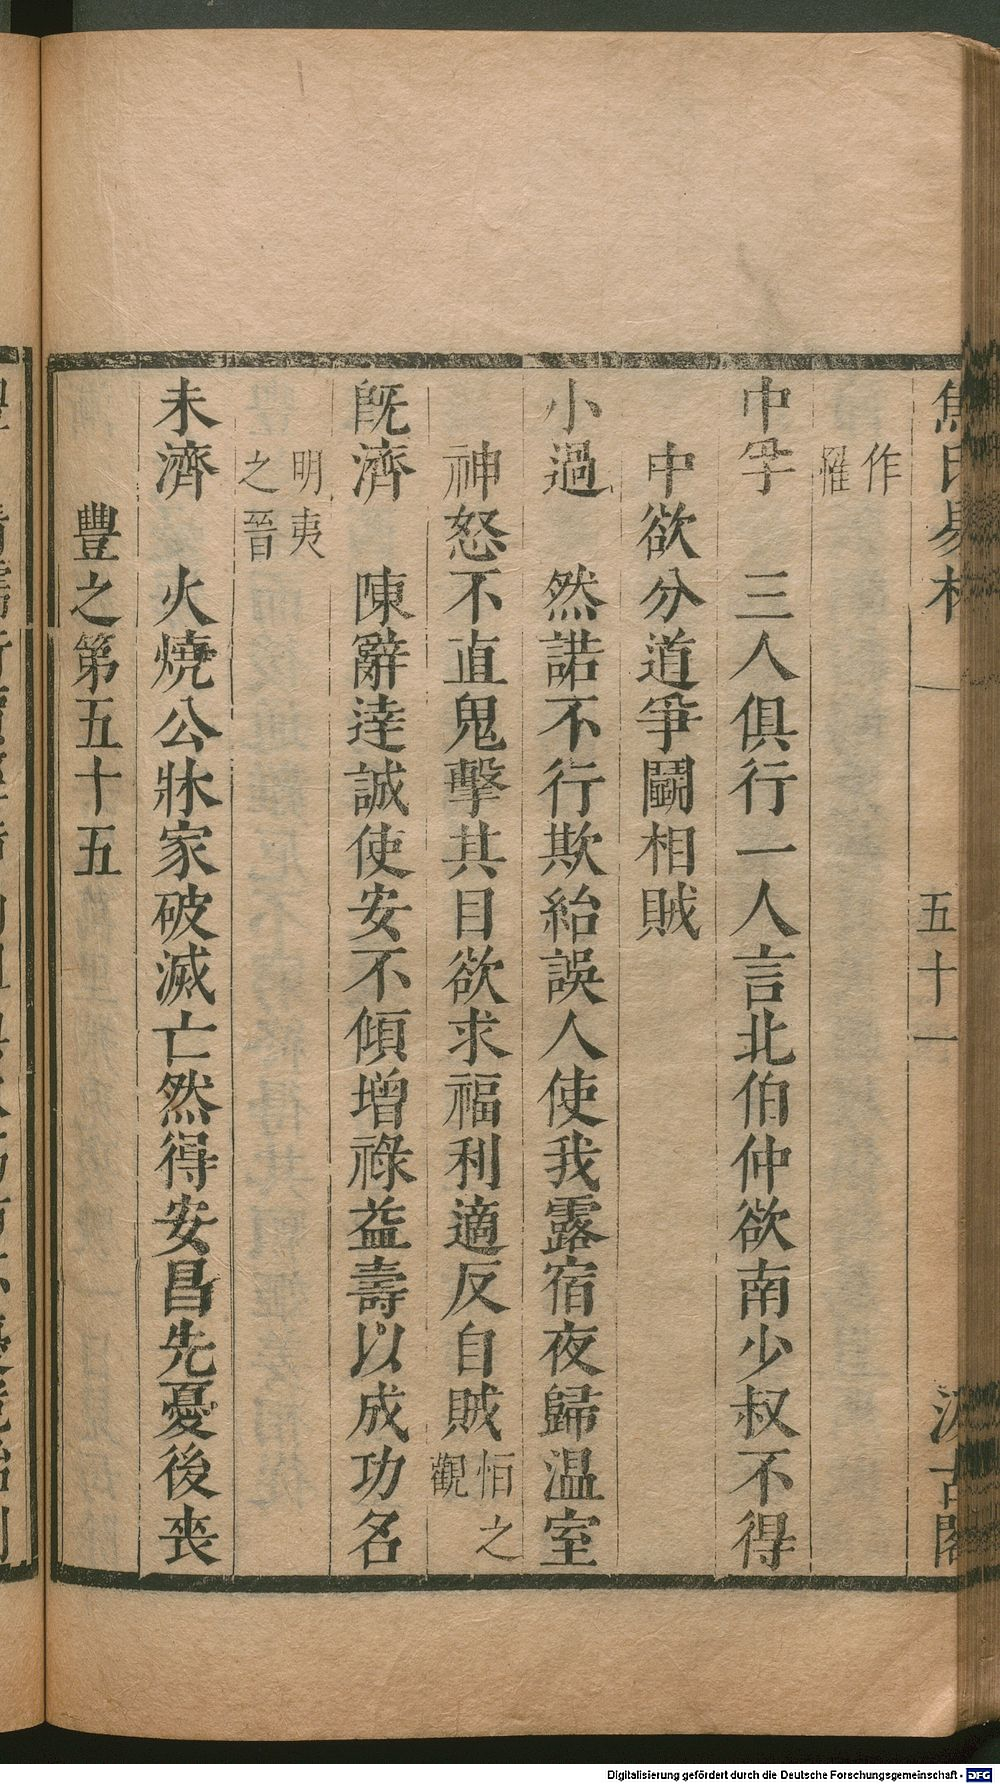 焦氏易林　五十一　汲古閣
作
罹
中孚　三人俱行一人言北伯仲欲南少叔不得
中欲分道爭鬭相賊
小過　然諾不行欺紿誤人使我露宿夜歸温室
神怒不直鬼擊其目欲求福利適反自賊恒之
觀
既濟　陳辭達誠使安不傾增祿益壽以成功名
明夷
之晉
未濟　火燒公牀家破滅亡然得安昌先憂後喪
豐之第五十五
Digitalisierung gefördert durch die Deutsche Forschungsgemeinschaft - DFG